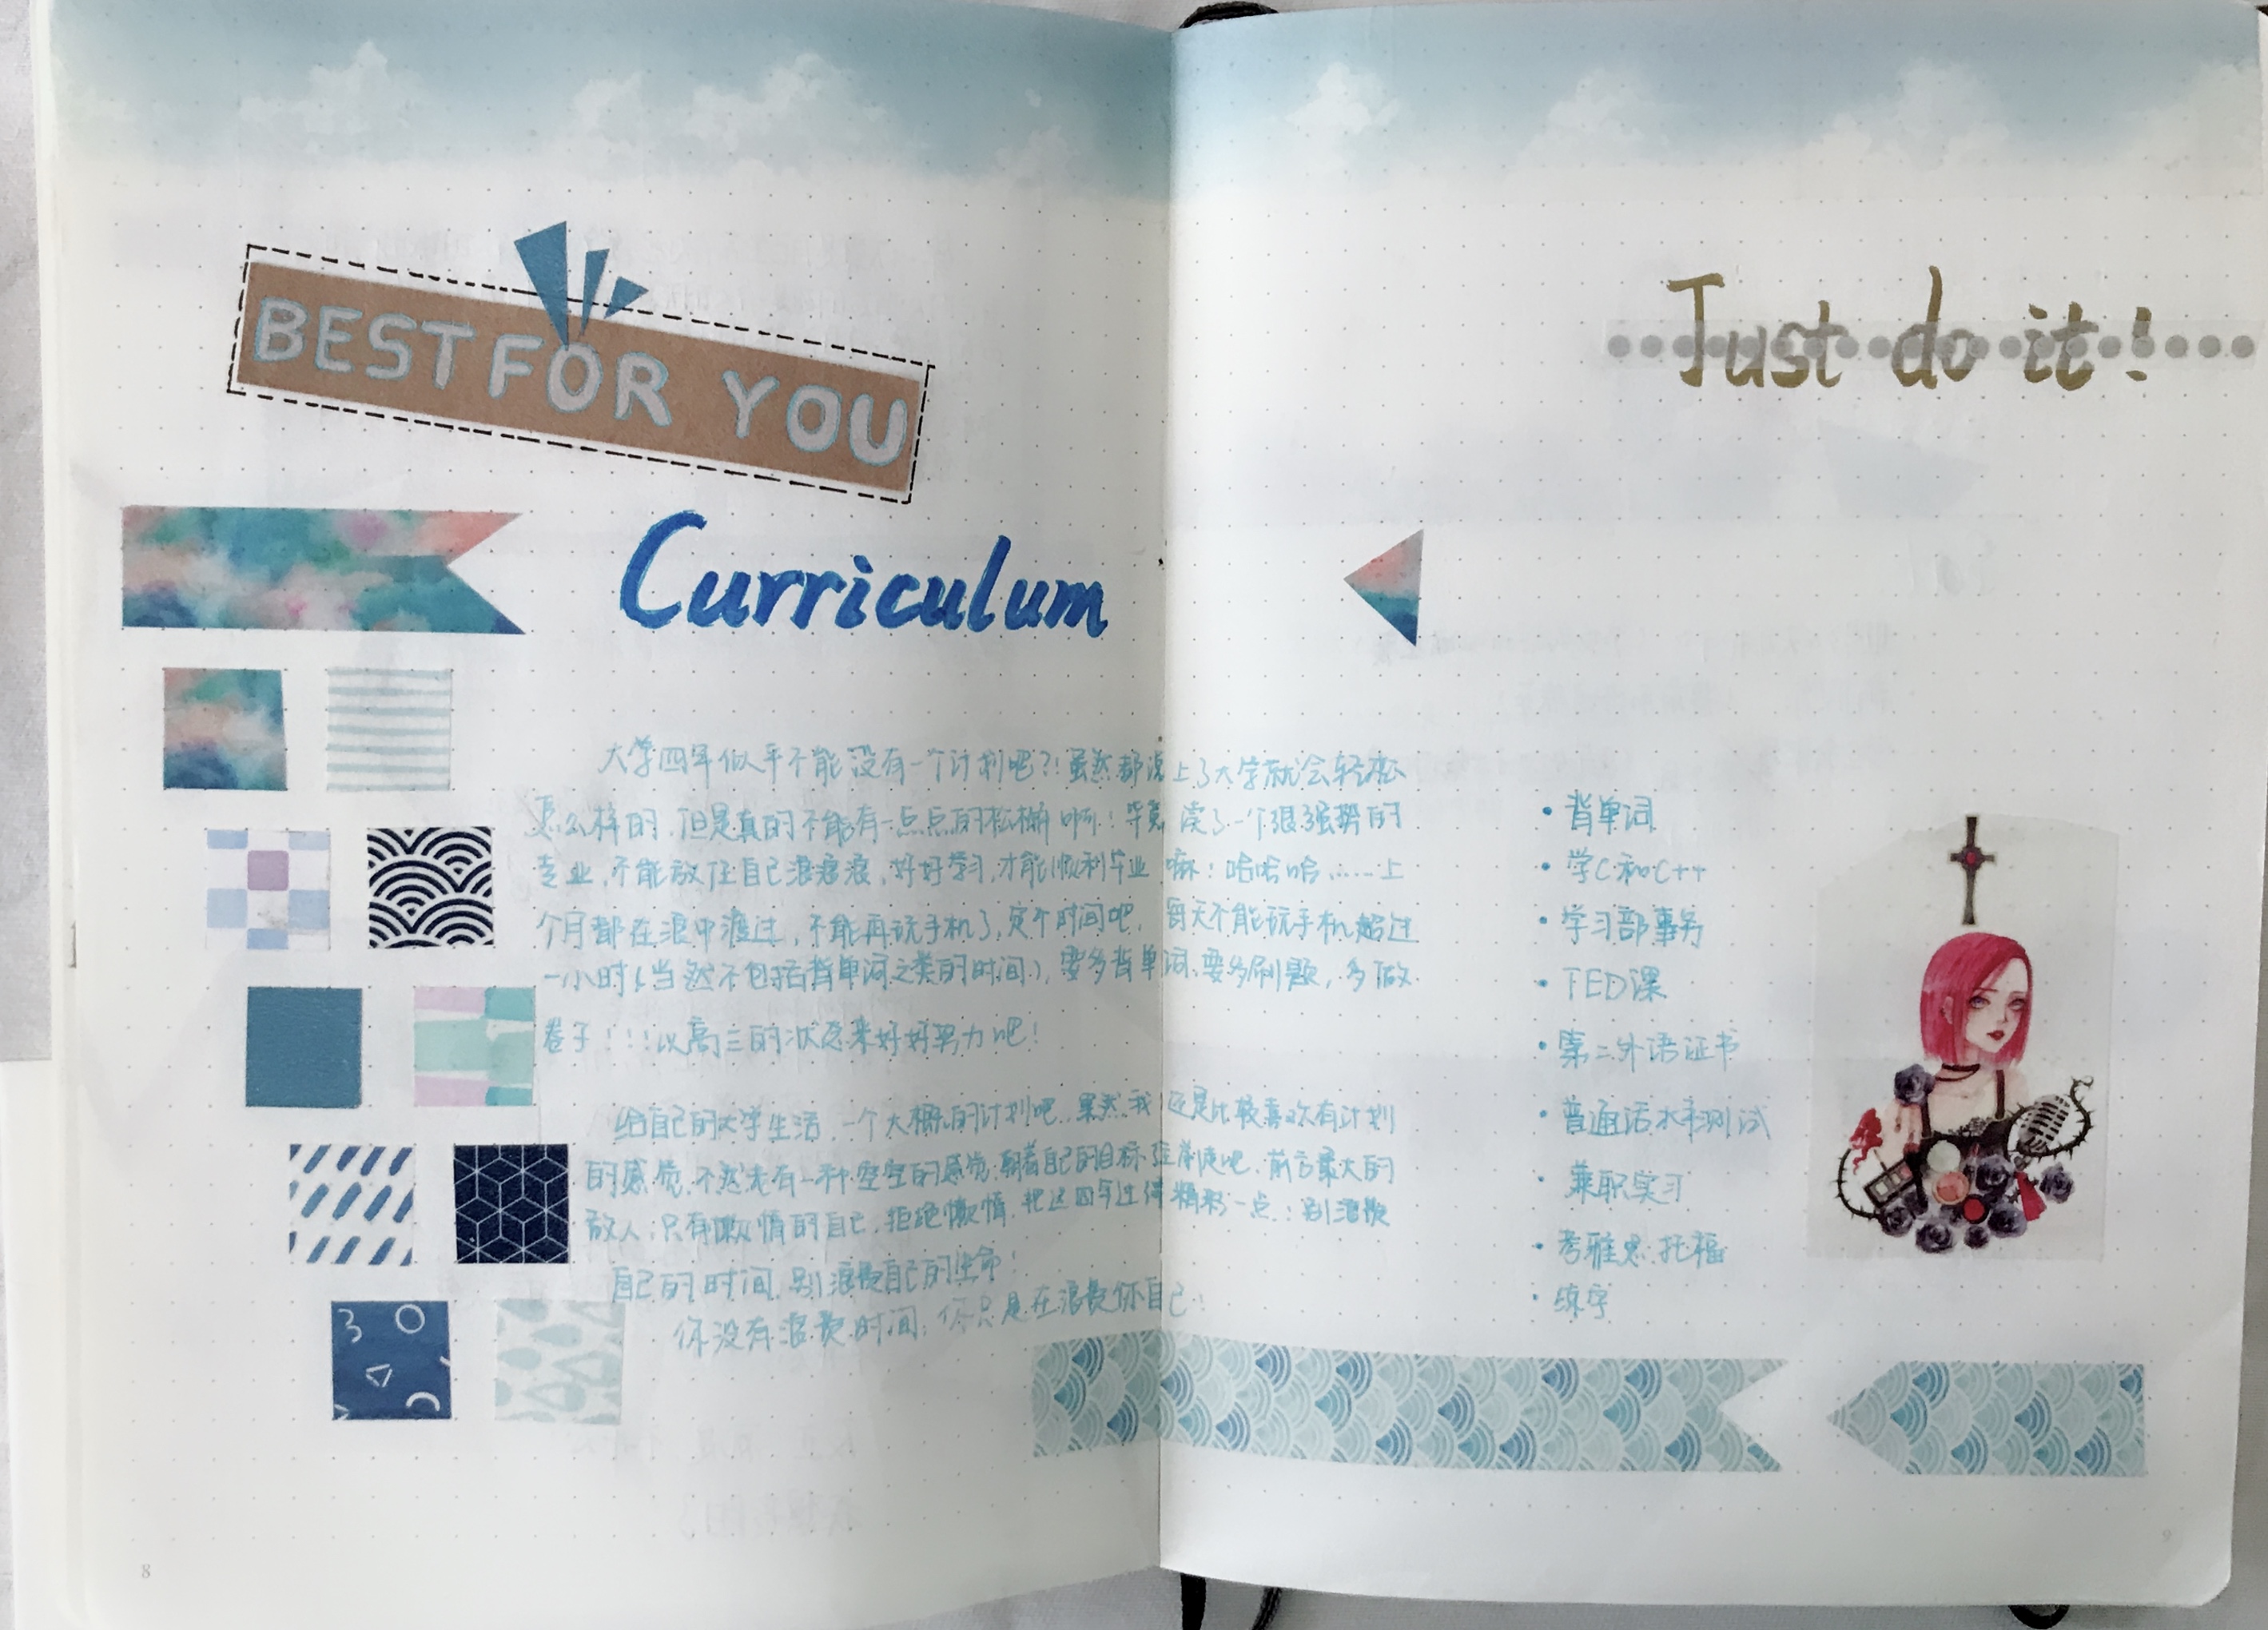 BEST FOR YOU
Just do it!
Curriculum
大学四年似乎不能没有一个计划吧?!虽然都说上了大学就会轻松
怎么样的,但是真的不能有一点点的松懈啊!毕竟读了一个很强势的
专业,不能放任自己浪浪浪,好好学习,才能顺利毕业嘛!哈哈哈……上
个月都在浪中渡过,不能再玩手机了,定个时间吧,每天不能玩手机超过
一小时(当然不包括背单词之类的时间),要多背单词,要多刷题,多做
卷子!!!以高三的状态来好好努力吧!
给自己的大学生活,一个大概的计划吧,果然我还是比较喜欢有计划
的感觉,不然先有一种空空的感觉,朝着自己的目标,前进吧,前方最大的
敌人,只有懒惰的自己,拒绝懒惰,把这四年过得精彩一点!别浪费
自己的时间,别浪费自己的生命!
你没有浪费时间,你只是在浪费你自己!
• 背单词
• 学C和C++
• 学习部事务
• TED课
• 第二外语证书
• 普通话水平测试
• 兼职实习
• 考雅思托福
• 练字
8
9